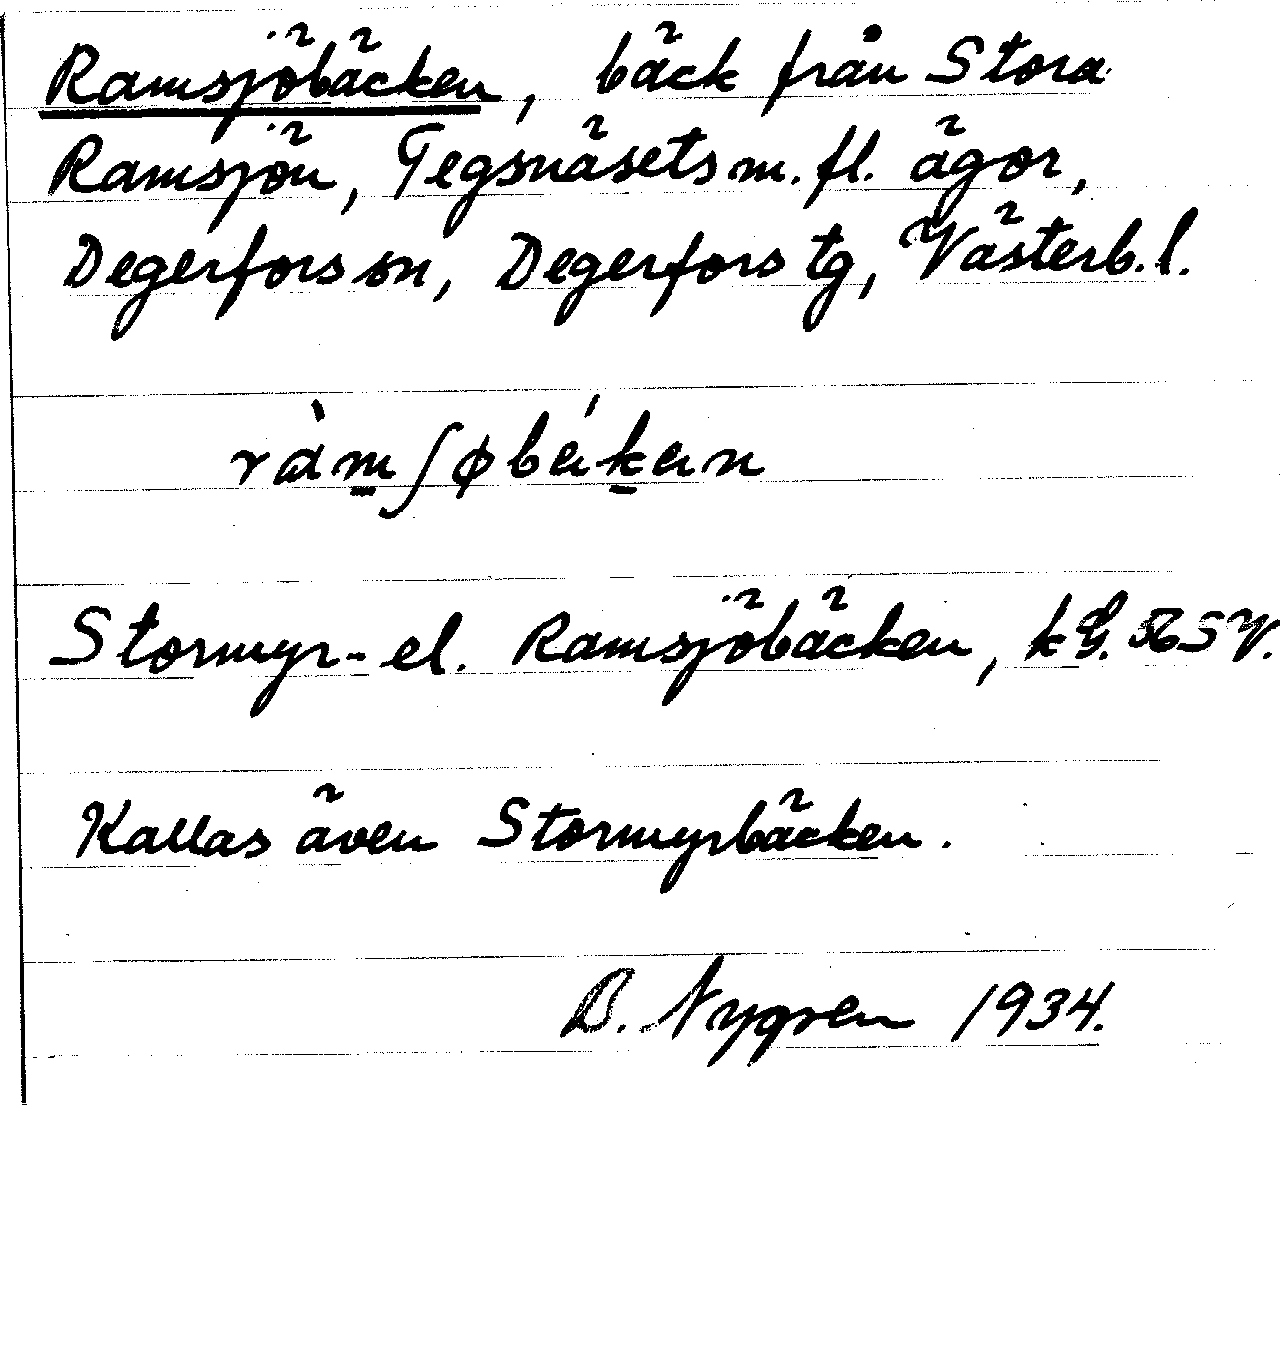 Ramsjöbäcken, bäck från Stora
Ramsjön, Tegsnäsets m. fl. ägor,
Degerfors sn, Degerfors tg, Västerb. l.
Stormyr- el. Ramsjöbäcken, kG. 56 SV.
Kallas även Stormyrbäcken.
B. Nygren 1934.